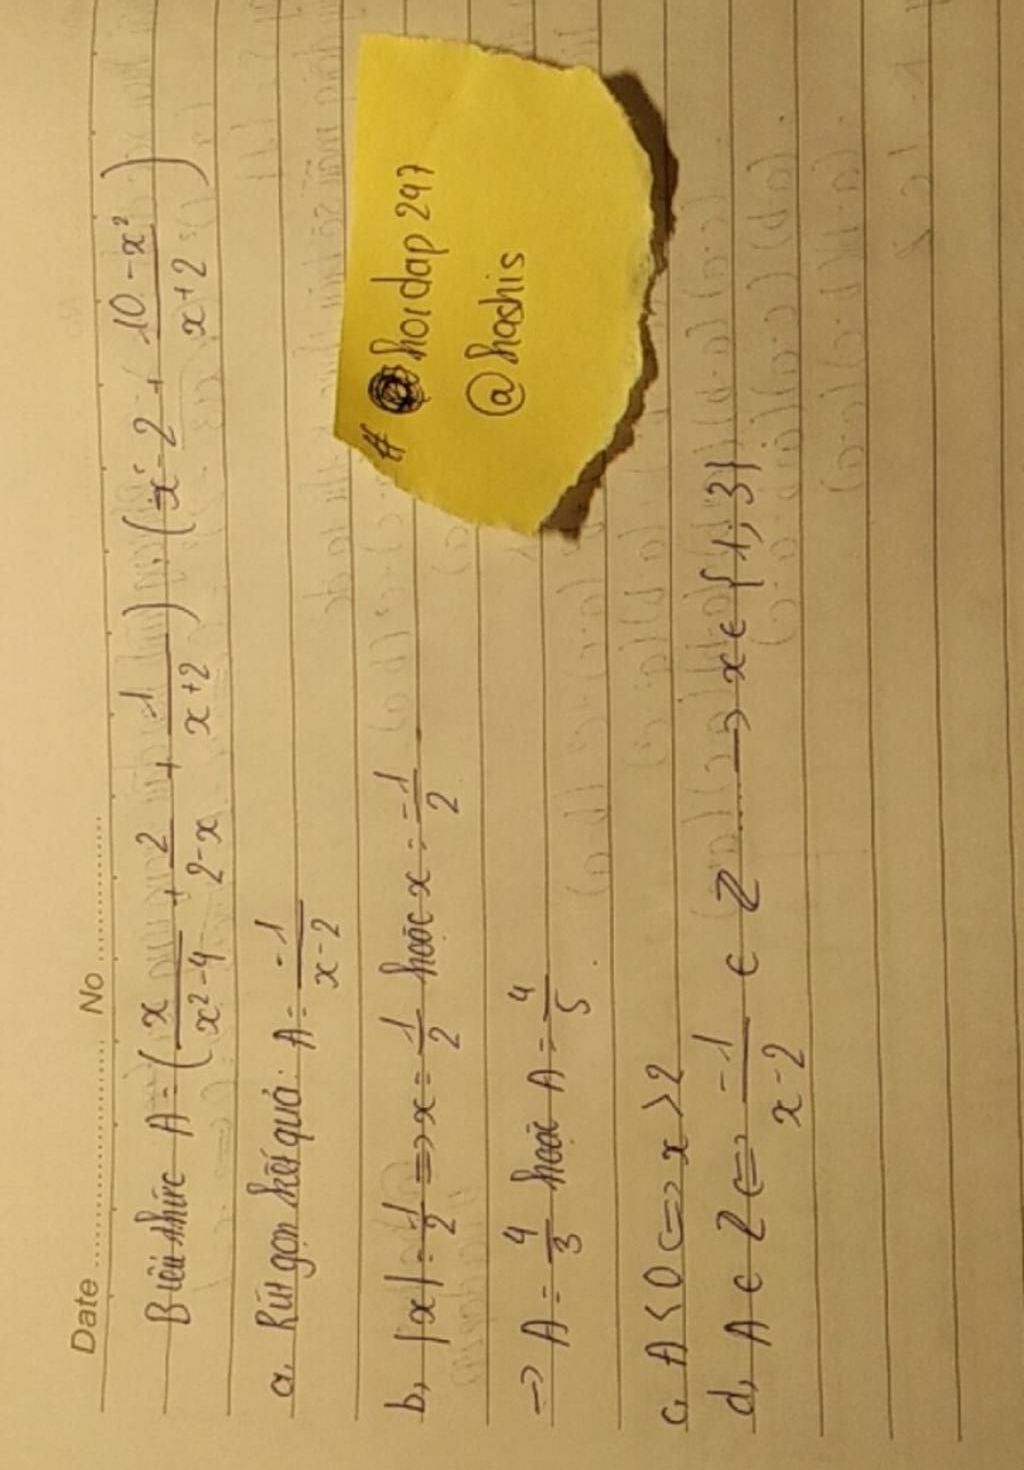 Date ............ No ............
Biểu thức A = (x/x²-4 + 2/2-x + 1/x+2) (x-2 + 10-x²/x+2)
a, Rút gọn kết quả: A = -1/x-2
b, |x| = 1/2 => x = 1/2 hoặc x = -1/2
=> A = 4/3 hoặc A = 4/5
c, A < 0 <=> x > 2
d, A ∈ Z <=> -1/x-2 ∈ Z ... -> x ∈ {1; 3}
# hoidap247
@hashis